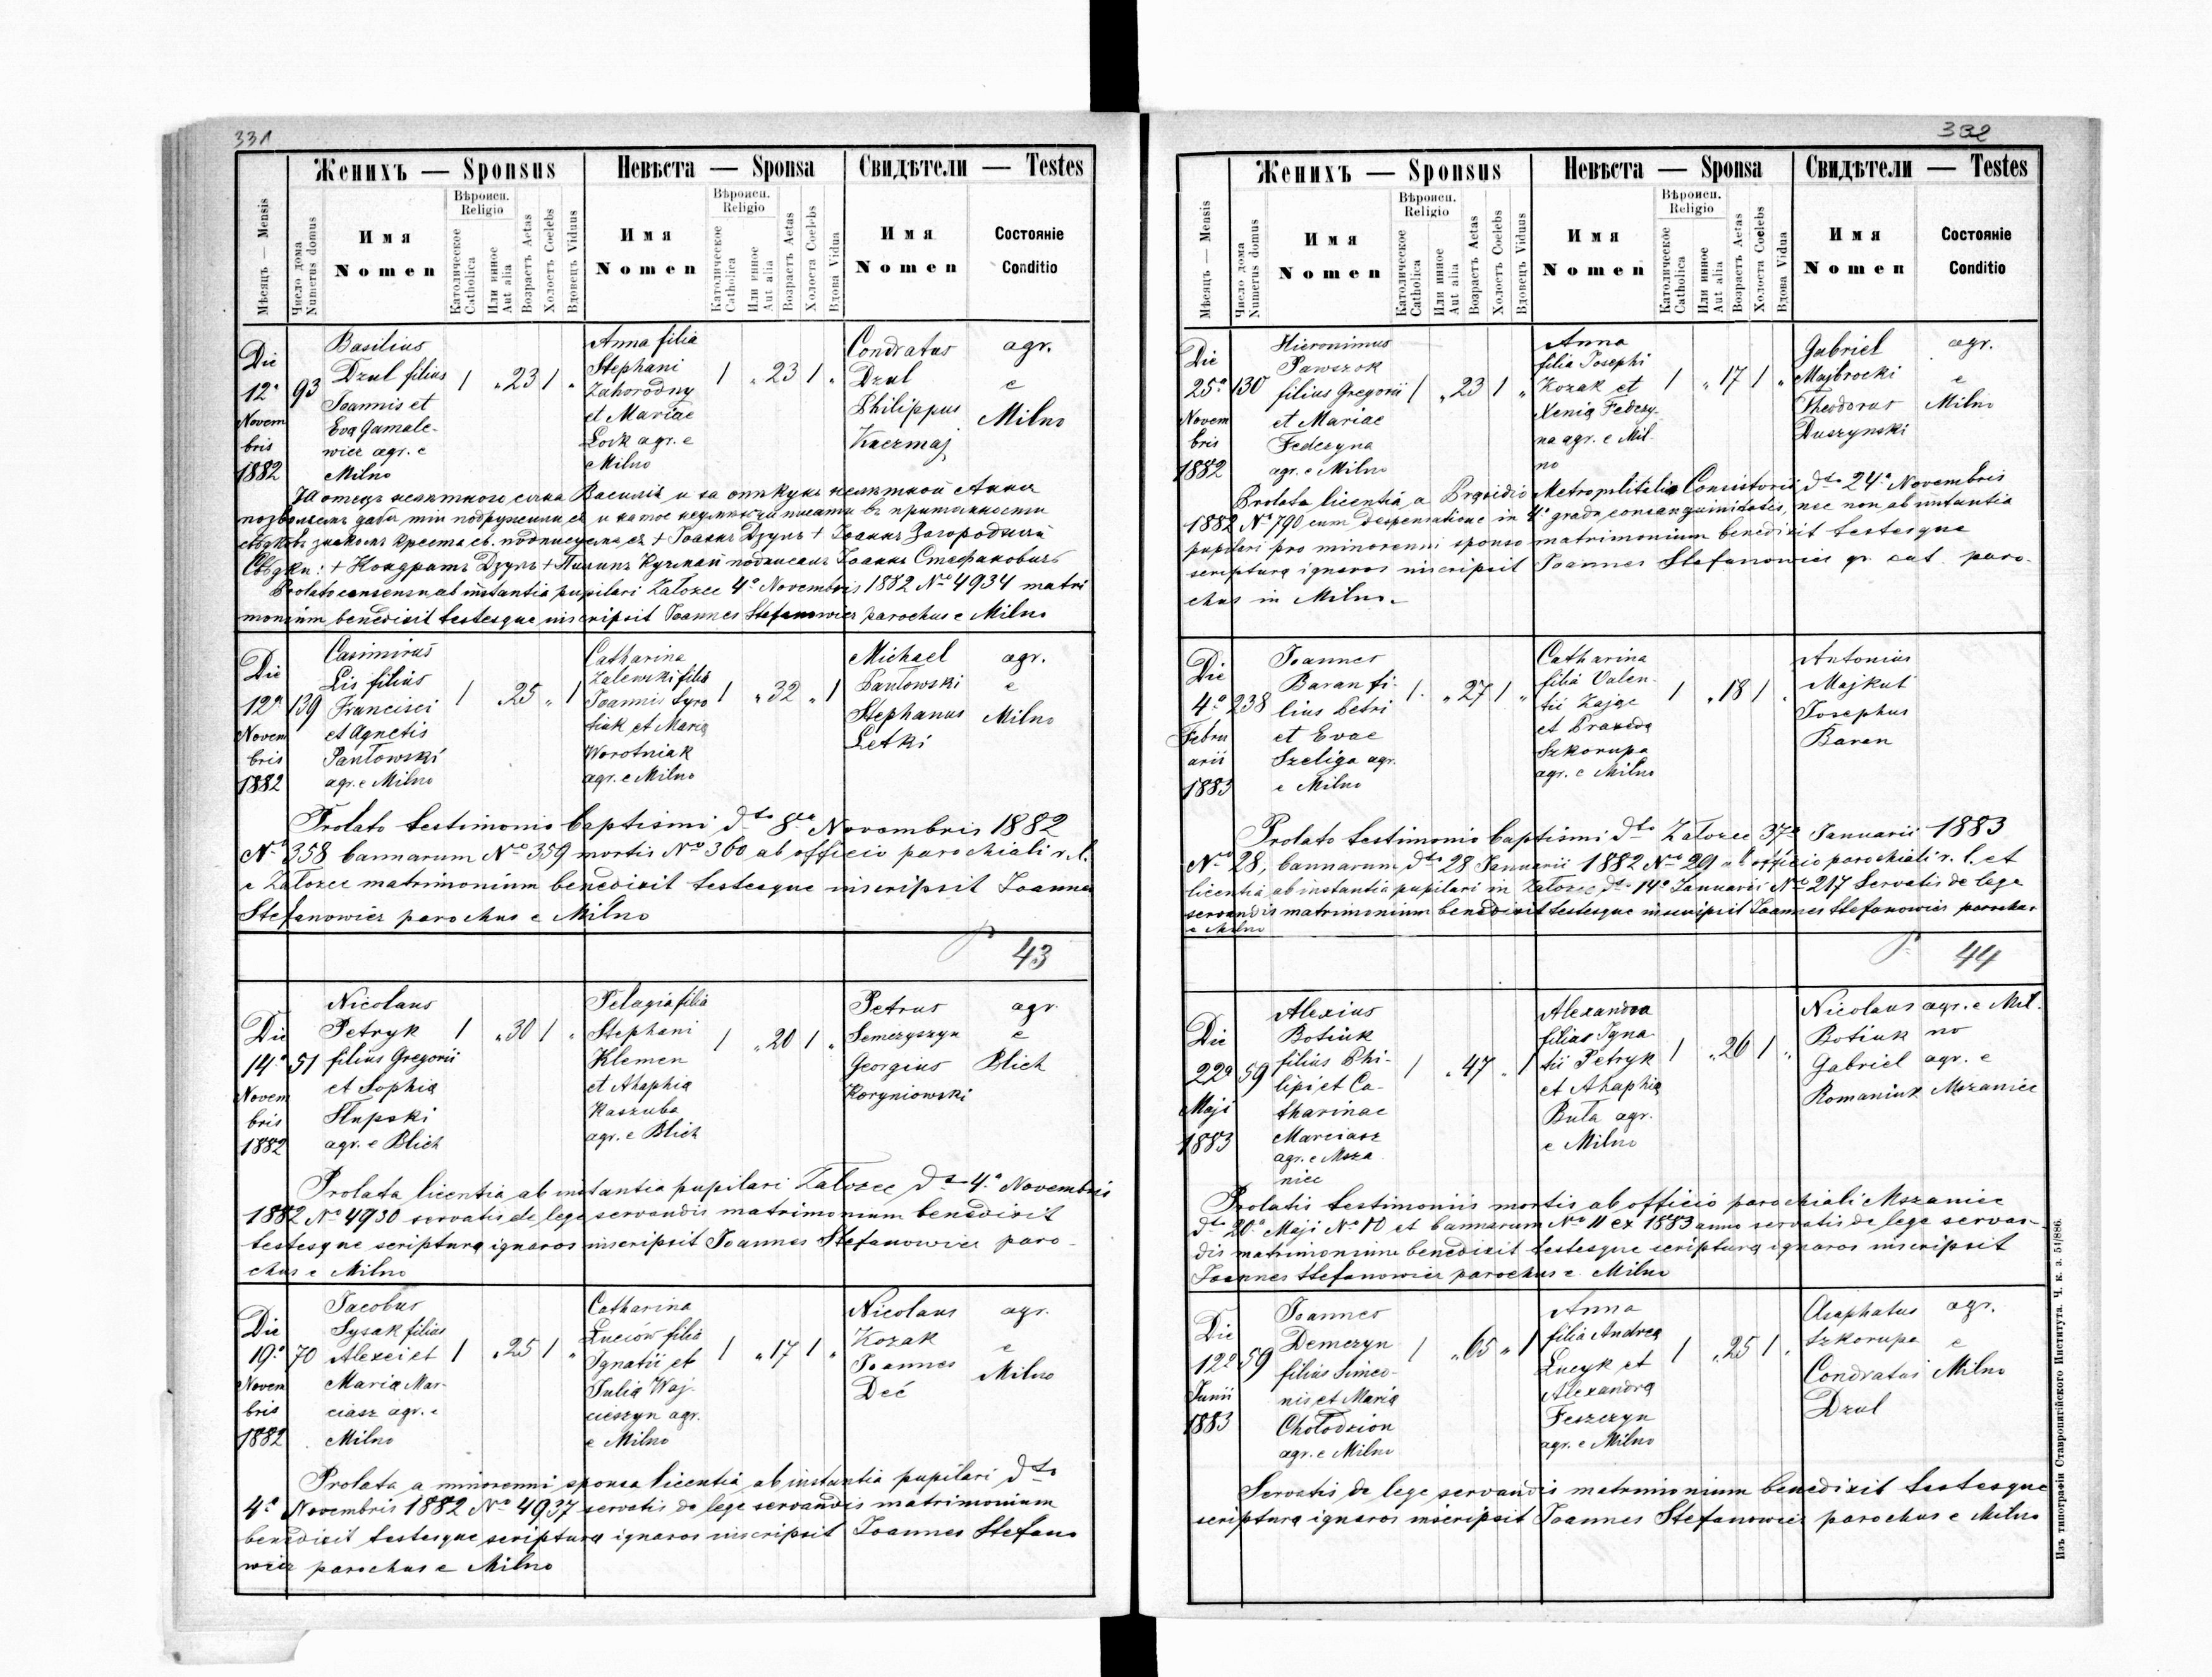 331
Женихъ — Sponsus
Невѣста — Sponsa
Свидѣтели — Testes
Мѣсяцъ — Mensis
Число дома
Numerus domus
Имя
Nomen
Вѣроисп.
Religio
Католическое
Catholica
Или инное
Aut alia
Возрастъ Aetas
Холостъ Coelebs
Вдовецъ Viduus
Имя
Nomen
Вѣроисп.
Religio
Католическое
Catholica
Или инное
Aut alia
Возрастъ Aetas
Холоста Coelebs
Вдова Vidua
Имя
Nomen
Состояніе
Conditio
Die
12ª
Novem
bris
1882
93
Basilius
Dzul filius
Joannis et
Eva Gamale-
wicz agr. e
Milno
1 „ 23 1 „
Anna filia
Stephani
Zahorodny
et Mariae
Lock agr. e
Milno
1 „ 23 1 „
Condratus
Dzul
Philippus
Kuczmaj
agr.
e
Milno
Я отецъ сына Василія и Анны
позволяемъ дабы тіи
знакомъ креста св. + Іоанъ Дзулъ + Іоанъ Загородный
Свѣдки: + Кондратъ Дзулъ + Пилипъ Кучмай подписалъ Іоаннъ Стефановичъ
Prolato consensu ab instantia pupilari Załozce 4ª Novembris 1882 Nº 4934 matri
monium benedixit testesque inscripsit Joannes Stefanowicz parochus e Milno
Die
12ª
Novem
bris
1882
139
Casimirus
Lis filius
Francisci
et Agnetis
Pantowski
agr. e Milno
1 „ 25 „ 1
Catharina
Zalewski filia
Joannis Syro
tiuk et Maria
Worotniak
agr. e Milno
1 „ 32 „ 1
Michael
Pantowski
Stephanus
Letki
agr.
e
Milno
Prolato testimonio baptismi dto 8va Novembris 1882
Nº 358 bannarum Nº 359 mortis Nº 360 ab officio parochiali r. l.
e Załozce matrimonium benedixit testesque inscripsit Joannes
Stefanowicz parochus e Milno
43
Die
14ª
Novem
bris
1882
51
Nicolaus
Petryk
filius Gregorii
et Sophia
Słupski
agr. e Blich
1 „ 30 1 „
Pelagia filia
Stephani
Klemen
et Ahaphia
Kaszuba
agr. e Blich
1 „ 20 1 „
Petrus
Semczyszyn
Georgius
Koryniowski
agr.
e
Blich
Prolata licentia ab instantia pupilari Załozce dto 4ª Novembris
1882 Nº 4930 servatis de lege servandis matrimonium benedixit
testesque scriptura ignaros inscripsit Joannes Stefanowicz paro-
chus e Milno
Die
19ª
Novem
bris
1882
70
Jacobus
Sysak filius
Alexei et
Maria Mar-
ciasz agr. e
Milno
1 „ 25 1 „
Catharina
Luciów filia
Ignatii et
Julia Woj-
cieszyn agr.
e Milno
1 „ 17 1 „
Nicolaus
Kozak
Joannes
Deć
agr.
e
Milno
Prolata a minorenni sponsa licentia ab instantia pupilari dto
4ª Novembris 1882 Nº 4937 servatis de lege servandis matrimonium
benedixit testesque scriptura ignaros inscripsit Joannes Stefano
wicz parochus e Milno
332
Женихъ — Sponsus
Невѣста — Sponsa
Свидѣтели — Testes
Мѣсяцъ — Mensis
Число дома
Numerus domus
Имя
Nomen
Вѣроисп.
Religio
Католическое
Catholica
Или инное
Aut alia
Возрастъ Aetas
Холостъ Coelebs
Вдовецъ Viduus
Имя
Nomen
Вѣроисп.
Religio
Католическое
Catholica
Или инное
Aut alia
Возрастъ Aetas
Холоста Coelebs
Вдова Vidua
Имя
Nomen
Состояніе
Conditio
Die
25ª
Novem
bris
1882
130
Hieronimus
Pawszok
filius Gregorii
et Mariae
Federyna
agr. e Milno
1 „ 23 1 „
Anna
filia Josephi
Kozak et
Xenia Federy-
na agr. e Mil-
no
1 „ 17 1 „
Gabriel
Majbrocki
Theodorus
Duszynski
agr.
e
Milno
Prolata licentia a Praesidio Metropolitalis Consistorii dto 24ª Novembris
1882 Nº 790 cum despensatione in 4º gradu consanguinidatis, nec non ab instantia
pupilari pro minorenni sponso matrimonium benedixit testesque
scriptura ignaros inscripsit Joannes Stefanowicz gr. cat. paro-
chus in Milno.
Die
4ª
Febru
arii
1883
238
Joannes
Baran fi-
lius Petri
et Evae
Szeliga agr.
e Milno
1 „ 27 1 „
Catharina
filia Valen-
tii Zajac
et Praxeda
Szkorupa
agr. e Milno
1 „ 18 1 „
Antonius
Majkut
Josephus
Baran
Prolato testimonio baptismi dto Załozce 37ª Januarii 1883
Nº 28, bannarum dto 28 Januarii 1882 Nº 29 ab officio parochiali r. l. et
licentia ab instantia pupilari in Załozce dto 14ª Januarii Nº 217 Servatis de lege
servandis matrimonium benedixit testesque inscripsit Joannes Stefanowicz parochus
e Milno
44
Die
22ª
Maji
1883
59
Alexius
Botiuk
filius Phi-
lipi et Ca-
tharinae
Marciasz
agr. e Msza
niec
1 „ 47 „ 1
Alexandra
filia Igna-
tii Petryk
et Ahaphia
Buła agr.
e Milno
1 „ 26 1 „
Nicolaus agr. e Mil-
Botiuk no
Gabriel agr. e
Romaniuk Mszaniec
Prolatis testimoniis mortis ab officio parochiali Mszaniec
dto 20ª Maji Nº 10 et bannarum Nº 11 ex 1883 anno servatis de lege servan-
dis matrimonium benedixit testesque scriptura ignaros inscripsit
Joannes Stefanowicz parochus e Milno
Die
12ª
Junii
1883
59
Joannes
Demczyn
filius Simeo-
nis et Maria
Chołodzion
agr. e Milno
1 „ 65 „ 1
Anna
filia Andrea
Lucyk et
Alexandra
Feszczyn
agr. e Milno
1 „ 25 1 „
Asaphatus
Szkorupa
Condratus
Dzul
agr.
e
Milno
Servatis de lege servandis matrimonium benedixit testesque
scriptura ignaros inscripsit Joannes Stefanowicz parochus e Milno
Изъ типографіи Ставропигійского Института. Ч. к. з. 51/886.